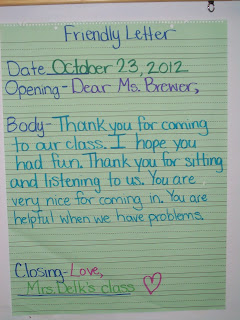 Friendly Letter
Date October 23, 2012
Opening-Dear Ms. Brewer,
Body-Thank you for coming
to our class. I hope you
had fun. Thank you for sitting
and listening to us. You are
very nice for coming in. You are
helpful when we have problems.
Closing-Love,
Mrs. Delk's class